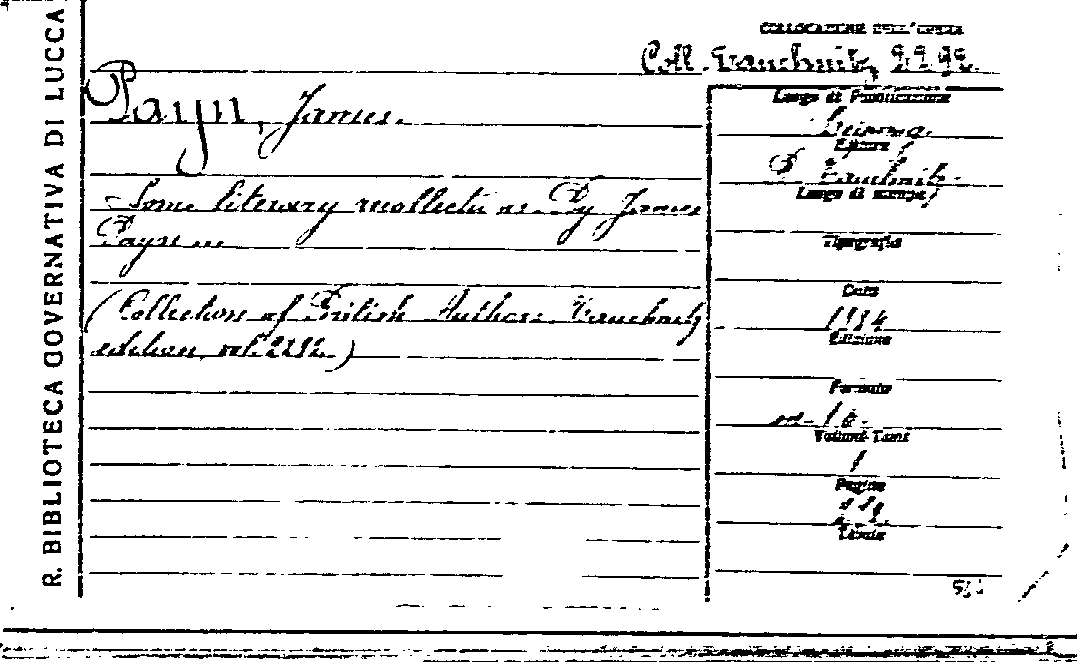 R. BIBLIOTECA GOVERNATIVA DI LUCCA
COLLOCAZIONE DELL'OPERA
Coll. Tauchnitz,
Payn, James.
Some literary recollections. By James
Payn ...
(Collection of British Authors Tauchnitz
edition, vol.
Luogo di Pubblicazione
Editore
B. Tauchnitz.
Luogo di stampa
Tipografia
Data
1884
Edizione
Formato
in-16.
Volumi-Tomi
1
Pagine
Tavole